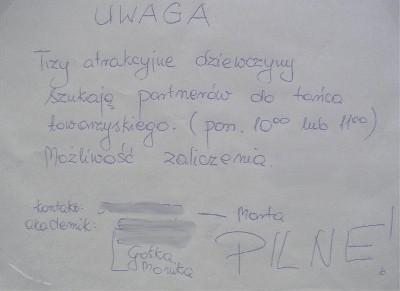 UWAGA
Trzy atrakcyjne dziewczyny
szukają partnerów do tańca
towarzyskiego. (pon. 10⁰⁰ lub 11⁰⁰)
Możliwość zaliczenia.
kontakt: — Marta
akademik:
Gośka
Monika
PILNE!